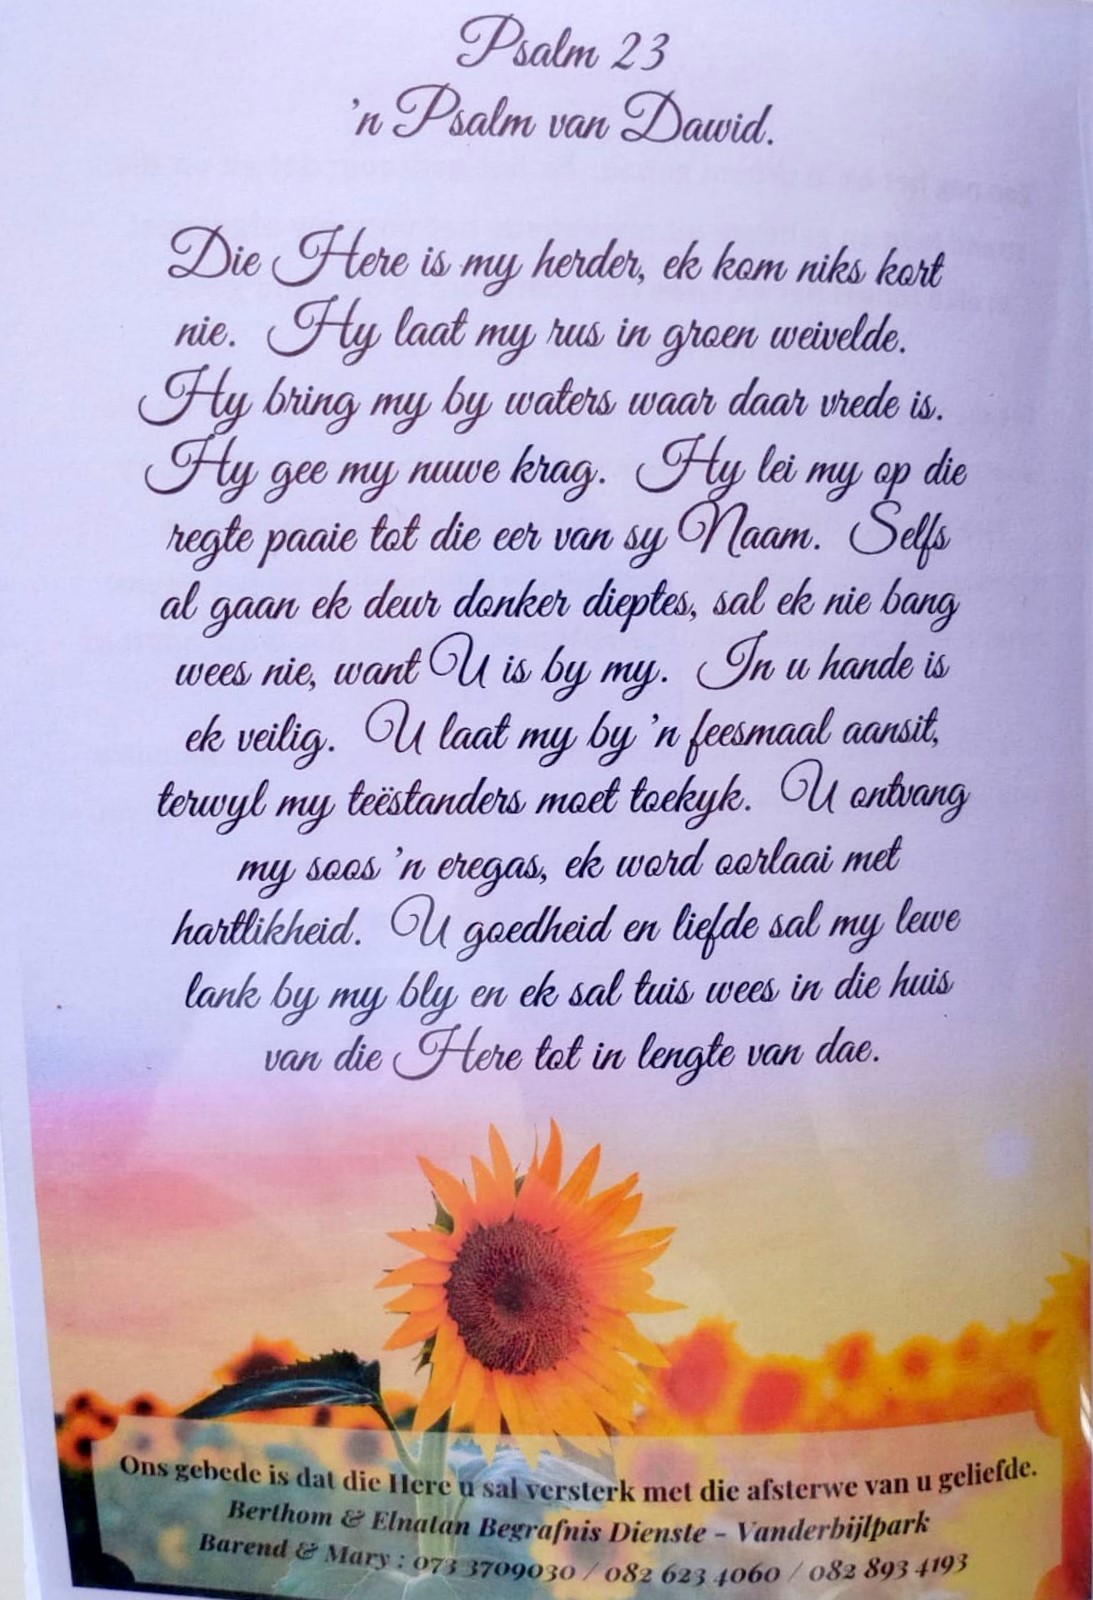 Psalm 23
'n Psalm van Dawid.
Die Here is my herder, ek kom niks kort
nie. Hy laat my rus in groen weivelde.
Hy bring my by waters waar daar vrede is.
Hy gee my nuwe krag. Hy lei my op die
regte paaie tot die eer van sy Naam. Selfs
al gaan ek deur donker dieptes, sal ek nie bang
wees nie, want U is by my. In u hande is
ek veilig. U laat my by 'n feesmaal aansit,
terwyl my teëstanders moet toekyk. U ontvang
my soos 'n eregas, ek word oorlaai met
hartlikheid. U goedheid en liefde sal my lewe
lank by my bly en ek sal tuis wees in die huis
van die Here tot in lengte van dae.
Ons gebede is dat die Here u sal versterk met die afsterwe van u geliefde.
Berthom & Elnatan Begrafnis Dienste - Vanderbijlpark
Barend & Mary : 073 3709030 / 082 623 4060 / 082 893 4193